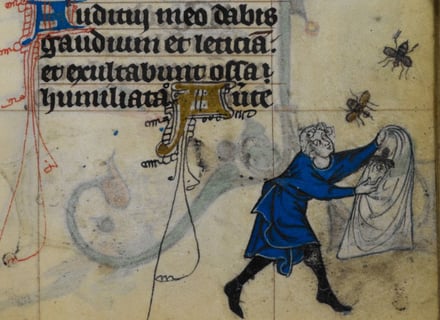 Auditui meo dabis
gaudium et leticiā.
et exultabunt ossa
humiliata